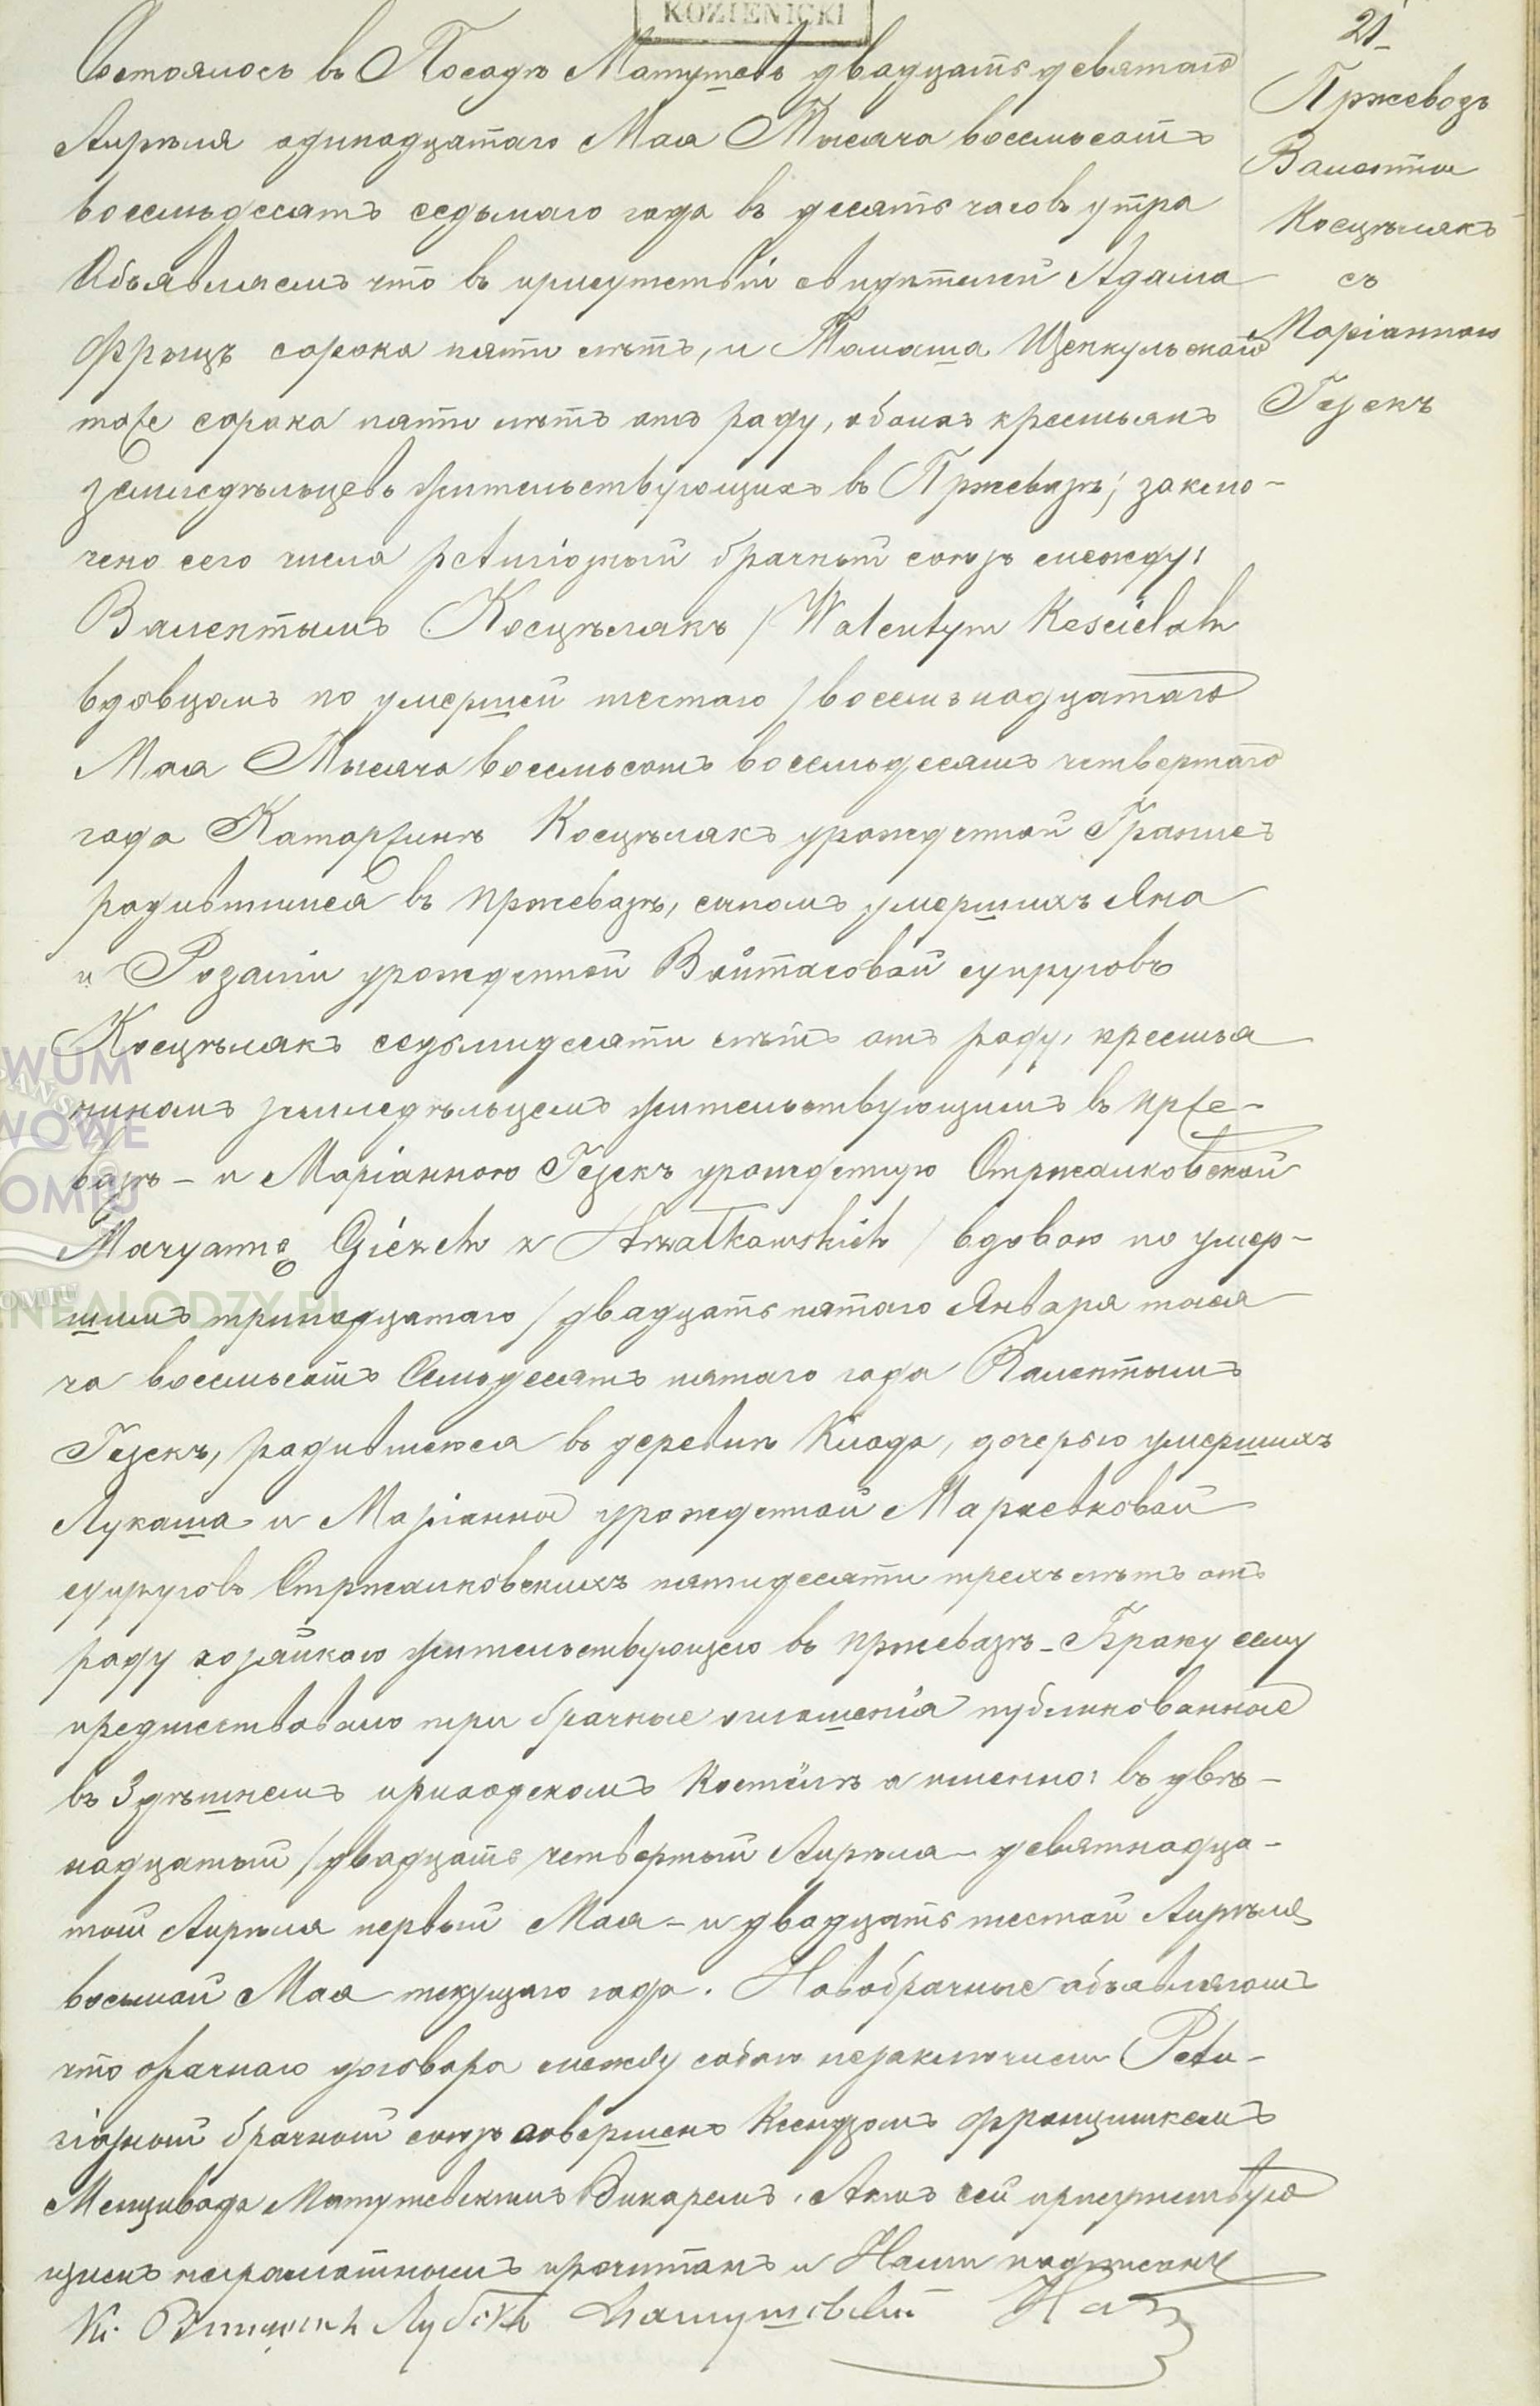 KOZIENICKI
21
Пржевозъ
Валентын
Косцѣлякъ
съ
Маріанною
Гезекъ
Состоялось въ Посадѣ Магнушевъ двадцать девятаго
Апрѣля одинадцатаго Мая Тысяча восемьсотъ
восемьдесятъ седьмаго года въ десять часовъ утра
Объявляемъ что въ присутствіи свидѣтелей Адама
Фрыцъ сорока пяти лѣтъ, и Томаша
тоже сорока пяти лѣтъ отъ роду, обоихъ крестьянъ
земледѣльцевъ жительствующихъ въ Пржевозѣ; заклю-
чено сего числа религіозный брачный союзъ между:
Валентымъ Косцѣлякъ / Walentym Kościelak
вдовцомъ по умершей шестаго / восемьнадцатаго
Мая Тысяча восемьсотъ восемьдесятъ четвертаго
года Катаржинѣ Косцѣлякъ урожденной
родившимся въ Пржевозѣ, сыномъ умершихъ Яна
и Розаліи урожденной супруговъ
Косцѣлякъ седьмидесяти лѣтъ отъ роду, крестья
ниномъ земледѣльцемъ жительствующимъ въ Прже-
возѣ - и Маріанною Гезекъ урожденную Стржалковской
Maryanną Giezek z Strzałkowskich / вдовою по умер-
шимъ тринадцатаго / двадцать пятаго Января тыся
ча восемьсотъ Семьдесятъ пятаго года Валентымъ
Гезекъ, родившеюся въ деревни Клода, дочерью умершихъ
Лукаша и Маріанны урожденной
супруговъ Стржалковскихъ пятидесяти трехъ лѣтъ отъ
роду хозяйкою жительствующею въ Пржевозѣ - Браку сему
предшествовало три брачные оглашенія публикованные
въ Здѣшнемъ приходскомъ Костёлѣ а именно: въ двѣ-
надцатый / двадцать четвертый Апрѣля - девятнадца-
тый Апрѣля первый Мая - и двадцать шестой Апрѣля
восьмой Мая текущаго года. Новобрачные объявляютъ
что брачнаго договора между собою незаключили Рели-
гіозный брачной союзъ совершенъ Ксендзомъ Францишкемъ
Магнушевскимъ Викаремъ. Актъ сей присутствую
щимъ неграмотнымъ прочитанъ и Нами подписанъ